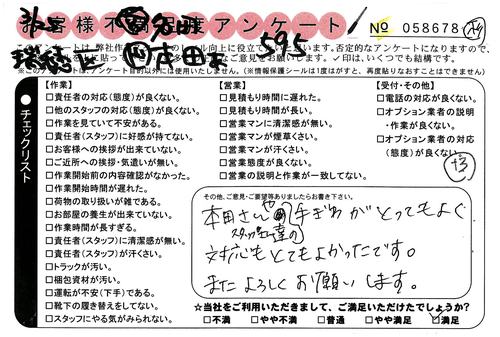 お客様不満足度アンケート
№ 058678
このアンケートは、弊社作 のレベル向上に役立て いと思います。否定的なアンケートになりますので、
ご意見をお聞かせ下さい。✓印は、いくつでも結構です。
※このアンケートは、アンケート目的以外には使用いたしません。(※情報保護シールは1度はがすと、再度貼りなおすことはできません)
チェックリスト
【作業】
□責任者の対応(態度)が良くない。
□他のスタッフの対応(態度)が良くない。
□作業を見ていて不安がある。
□責任者(スタッフ)に好感が持てない。
□お客様への挨拶が出来ていない。
□ご近所への挨拶・気遣いが無い。
□作業開始前の内容確認がなかった。
□作業開始時間が遅れた。
□荷物の取り扱いが雑である。
□お部屋の養生が出来ていない。
□作業時間が長すぎる。
□責任者(スタッフ)に清潔感が無い。
□責任者(スタッフ)が汗くさい。
□トラックが汚い。
□梱包資材が汚い。
□運転が不安(下手)である。
□靴下の履き替えをしていない。
□スタッフにやる気がみられない。
【営業】
□見積もり時間に遅れた。
□見積もり時間が長い。
□営業マンに清潔感が無い。
□営業マンが煙草くさい。
□営業マンが汗くさい。
□営業態度が良くない。
□営業の説明と作業が一致してない。
【受付・その他】
□電話の対応が良くない。
□オプション業者の説明
・作業が良くない。
□オプション業者の対応
(態度)が良くない。
その他、ご意見・ご要望等ありましたらお書き下さい。
本田さんや 手ぎわがとってもよく
スタッフの皆様の
対応もとてもよかったです。
またよろしくお願いします。
☆当社をご利用いただきまして、ご満足いただけたでしょうか?
□不満 □やや不満 □普通 □やや満足 ☑満足